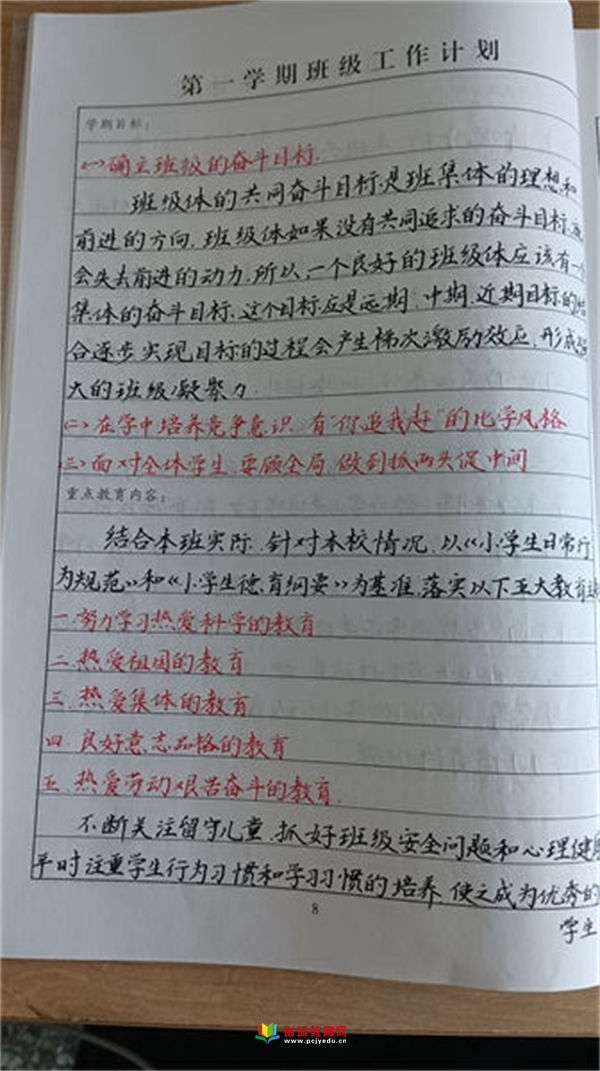 第一学期班级工作计划
学期目标:
(一)确立班级的奋斗目标.
班级体的共同奋斗目标,是班集体的理想和
前进的方向,班级体如果没有共同追求的奋斗目标,
会失去前进的动力,所以,一个良好的班级体应该有一
集体的奋斗目标,这个目标应是远期、中期、近期目标的
合逐步实现目标的过程会产生梯次激励效应,形成
大的班级凝聚力.
(二)在学中培养竞争意识,有“你追我赶”的比学风格
(三)面对全体学生,要顾全局,做到抓两头促中间
重点教育内容:
结合本班实际,针对本校情况,以《小学生日常行
为规范》和《小学生德育纲要》为基准,落实以下五大教育
一.努力学习热爱科学的教育
二.热爱祖国的教育
三.热爱集体的教育
四.良好意志品格的教育
五.热爱劳动艰苦奋斗的教育.
不断关注留守儿童,抓好班级安全问题和心理健
平时注重学生行为习惯和学习习惯的培养,使之成为优秀的
学生
8
www.pcjyedu.cn